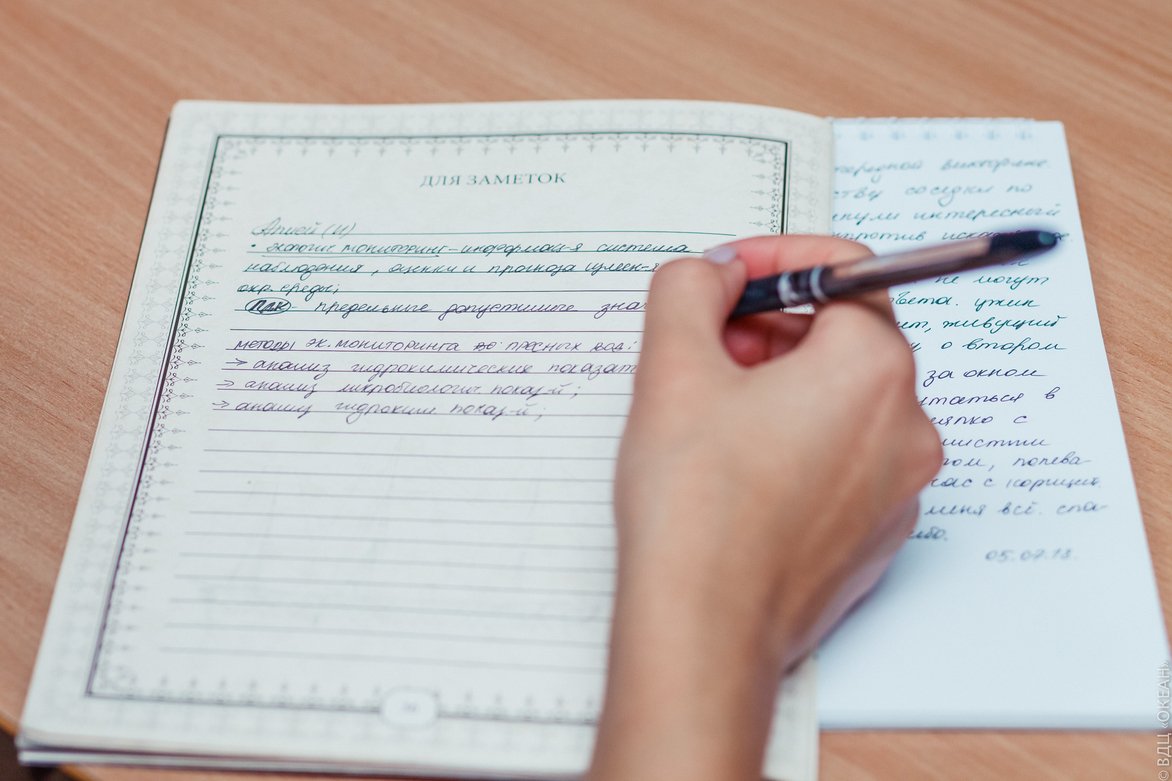 ДЛЯ ЗАМЕТОК
• экологич мониторинг - информацион-я система
наблюдения, оценки и прогноза
окр. среды;
ПДК - предельные допустимые знач
методы эк. мониторинга пресных вод:
→ анализ гидрохимических показат
→ анализ микробиологич. показ-й;
→ анализ гидрохим показ-й;
очередной викторине.
ству соседки по
нули интересный
против
не могут
ета. ужин
ет, живущий
у о втором
за окном
таться в
с
ом, попева
час с корицей,
меня всё. спа-
сибо.
05.07.18.
© ВДЦ «ОКЕАН»